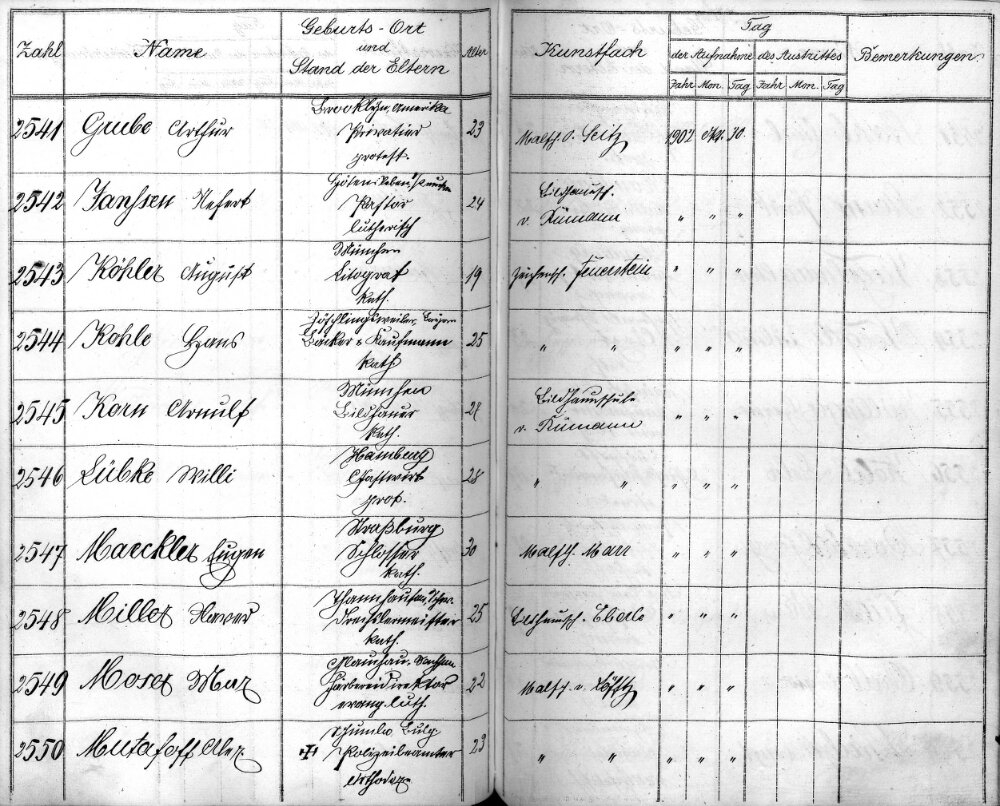 Zahl Name Geburts-Ort und Stand der Eltern Alter Kunstfach Tag der Aufnahme des Austrittes Bemerkungen
Jahr Mon. Tag Jahr Mon. Tag
Brooklyn, Amerika
2541 Grube Arthur Privatier 23 Malsch. v. Seitz 1902 Okt. 10.
protest.
2542 Janssen Refert Pastor 24 Bildhauersch. v. Rümann " " "
lutherisch
München
2543 Köhler August Litograf 19 Zeichensch. Feuerstein " " "
kath.
2544 Kohle Hans Bäcker u. Kaufmann 25 " " " " "
kath.
München
2545 Korn Arnulf Bildhauer Bildhauerschule v. Rümann " " "
kath.
Hamburg
2546 Lübke Willi Gastwirt 28 " " " " "
prot.
Straßburg
2547 Maeckler Eugen Schlosser 30 Malsch. Marr " " "
kath.
Thannhausen
2548 Miller Xaver Drechslermeister 25 Bildhauersch. Eberle " " "
kath.
Glauchau. Sachsen
2549 Moser Max Färbereidirektor 22 Malsch. v. Löfftz " " "
evang. luth.
Schumla Bulg
2550 Mutafoff Alex Polizeibeamter 23 " " " " "
Orthodox